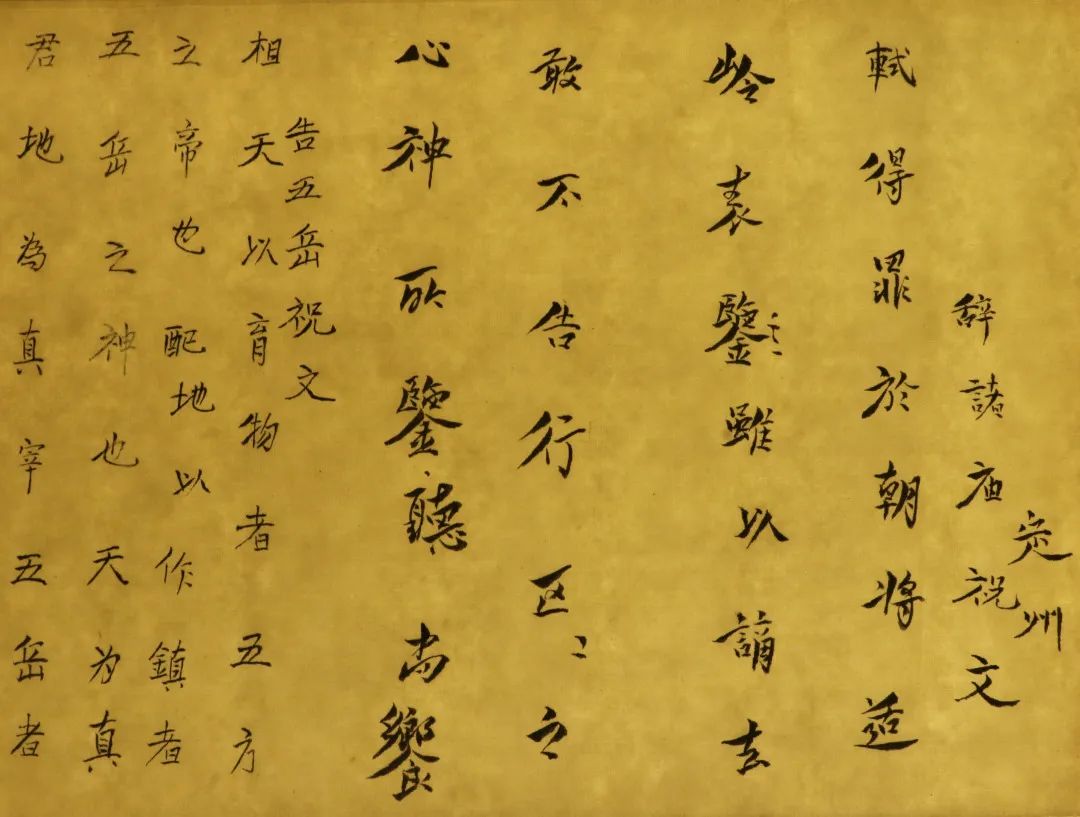 定州
辞諸庙祝文
軾得罪於朝將適
岭表鑒雖以謫去
敢不告行区〻之
心神所鑒聽尚饗
告五岳祝文
相天以育物者五方
之帝也配地以作鎮者
五岳之神也天为真
君地為真宰五岳者